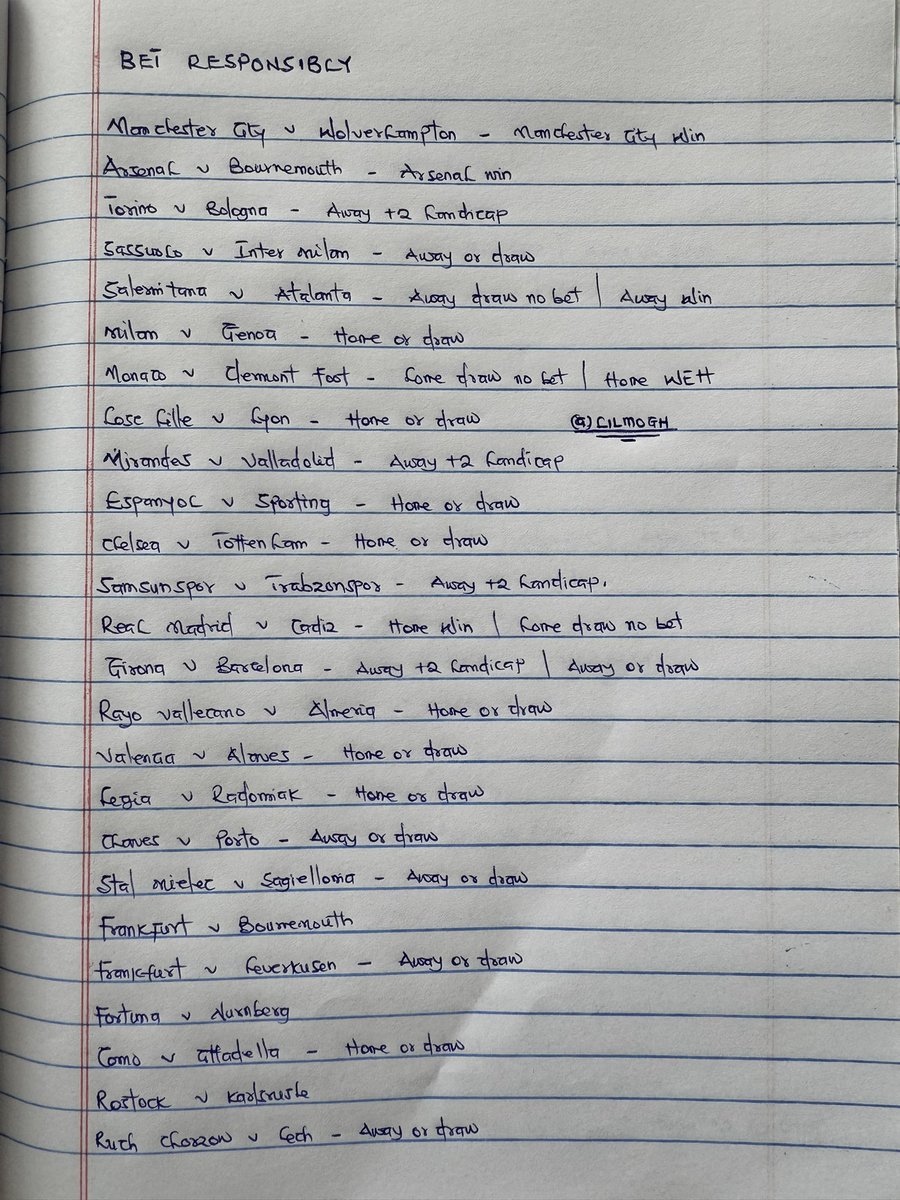 BET RESPONSIBLY
Manchester City v Wolverhampton - Manchester City Win
Arsenal v Bournemouth - Arsenal win
Torino v Bologna - Away +2 handicap
Sassuolo v Inter milan - Away or draw
Salernitana v Atalanta - Away draw no bet | Away Win
Milan v Genoa - Home or draw
Monaco v Clermont Foot - home draw no bet | Home WEH
Losc Lille v Lyon - Home or draw
@LILMOGH
Mirandes v Valladolid - Away +2 handicap
Espanyol v Sporting - Home or draw
Chelsea v Tottenham - Home or draw
Samsunspor v Trabzonspor - Away +2 handicap.
Real Madrid v Cadiz - Home Win | home draw no bet
Girona v Barcelona - Away +2 handicap | Away or draw
Rayo Vallecano v Almeria - Home or draw
Valencia v Alaves - Home or draw
Legia v Radomiak - Home or draw
Chaves v Porto - Away or draw
Stal mielec v Jagielloma - Away or draw
Frankfurt v Bournemouth
Frankfurt v Leverkusen - Away or draw
Fortuna v Nurnberg
Como v Cittadella - Home or draw
Rostock v Karlsruhe
Ruch Chorzow v Lech - Away or draw